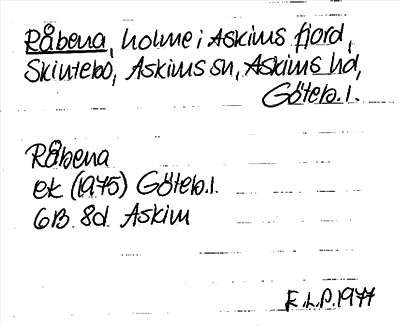 Råbena, holme i Askims fjord,
Skintebo, Askims sn, Askims hd,
Göteb. l.
Råbena
ek (1975) Göteb. l.
6B 8d Askim
E.L.P. 1977